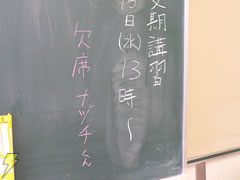 期講習
日(水)13時〜
欠席 ガッチくん